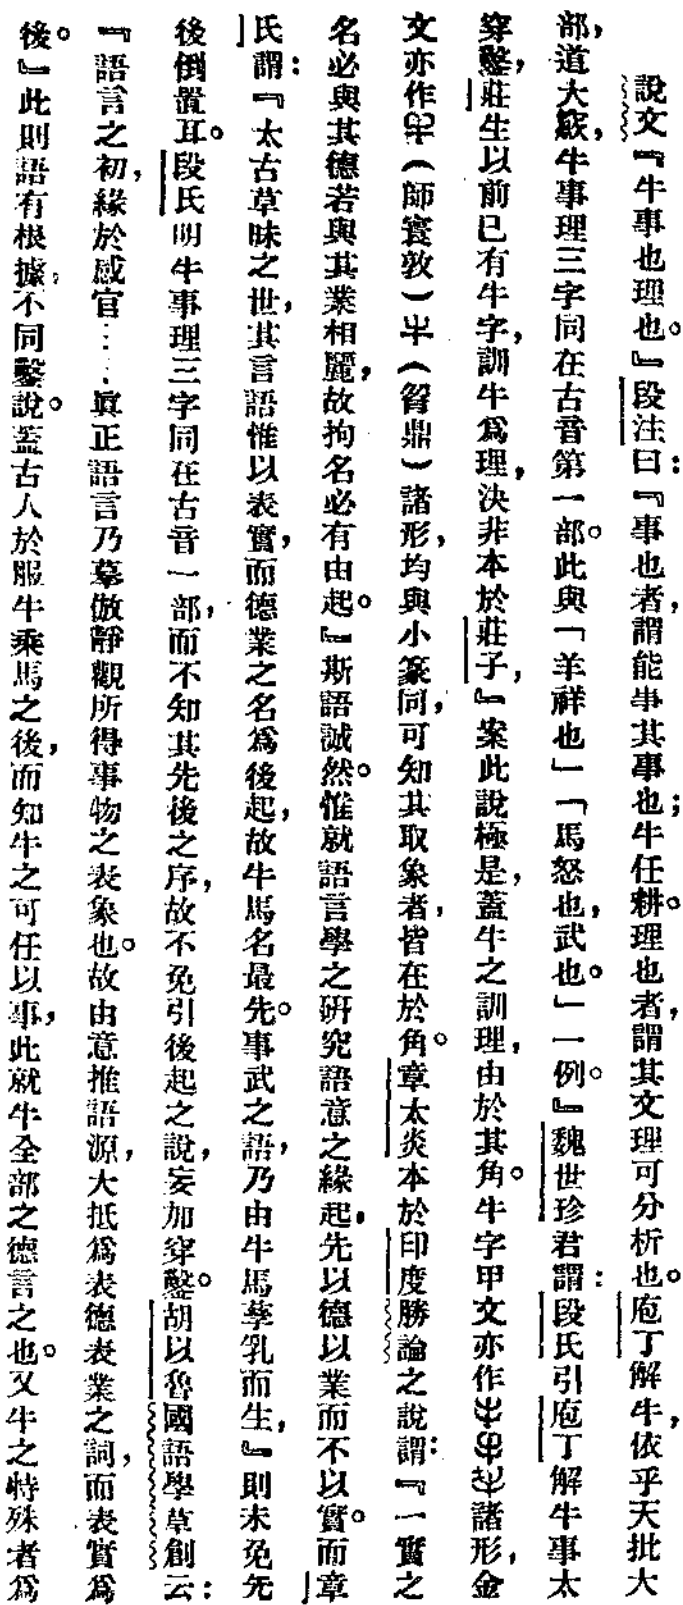 說文『牛事也理也。』段注曰：『事也者，謂能事其事也；牛任耕。理也者，謂其文理可分析也。庖丁解牛，依乎天批大
部，道大窾，牛事理三字同在古音第一部。此與「羊祥也」「馬怒也，武也。」一例。』魏世珍君謂：段氏引庖丁解牛事太
穿鑿，莊生以前已有牛字，訓牛爲理，決非本於莊子，』案此說極是，蓋牛之訓理，由於其角。牛字甲文亦作諸形，金
文亦作（師寰敦）（曶鼎）諸形，均與小篆同，可知其取象者，皆在於角。章太炎本於印度勝論之說謂：『一實之
名必與其德若與其業相麗，故拘名必有由起。』斯語誠然。惟就語言學之研究語意之緣起，先以德以業而不以實。而章
氏謂：『太古草昧之世，其言語惟以表實，而德業之名爲後起，故牛馬名最先。事武之語，乃由牛馬孳乳而生，』則未免先
後倒置耳。段氏明牛事理三字同在古音一部，而不知其先後之序，故不免引後起之說，妄加穿鑿。胡以魯國語學草創云：
『語言之初，緣於感官……眞正語言乃摹倣靜觀所得事物之表象也。故由意推語源，大抵爲表德表業之詞，而表實爲
後。』此則語有根據，不同鑿說。蓋古人於服牛乘馬之後，而知牛之可任以事，此就牛全部之德言之也。又牛之特殊者爲